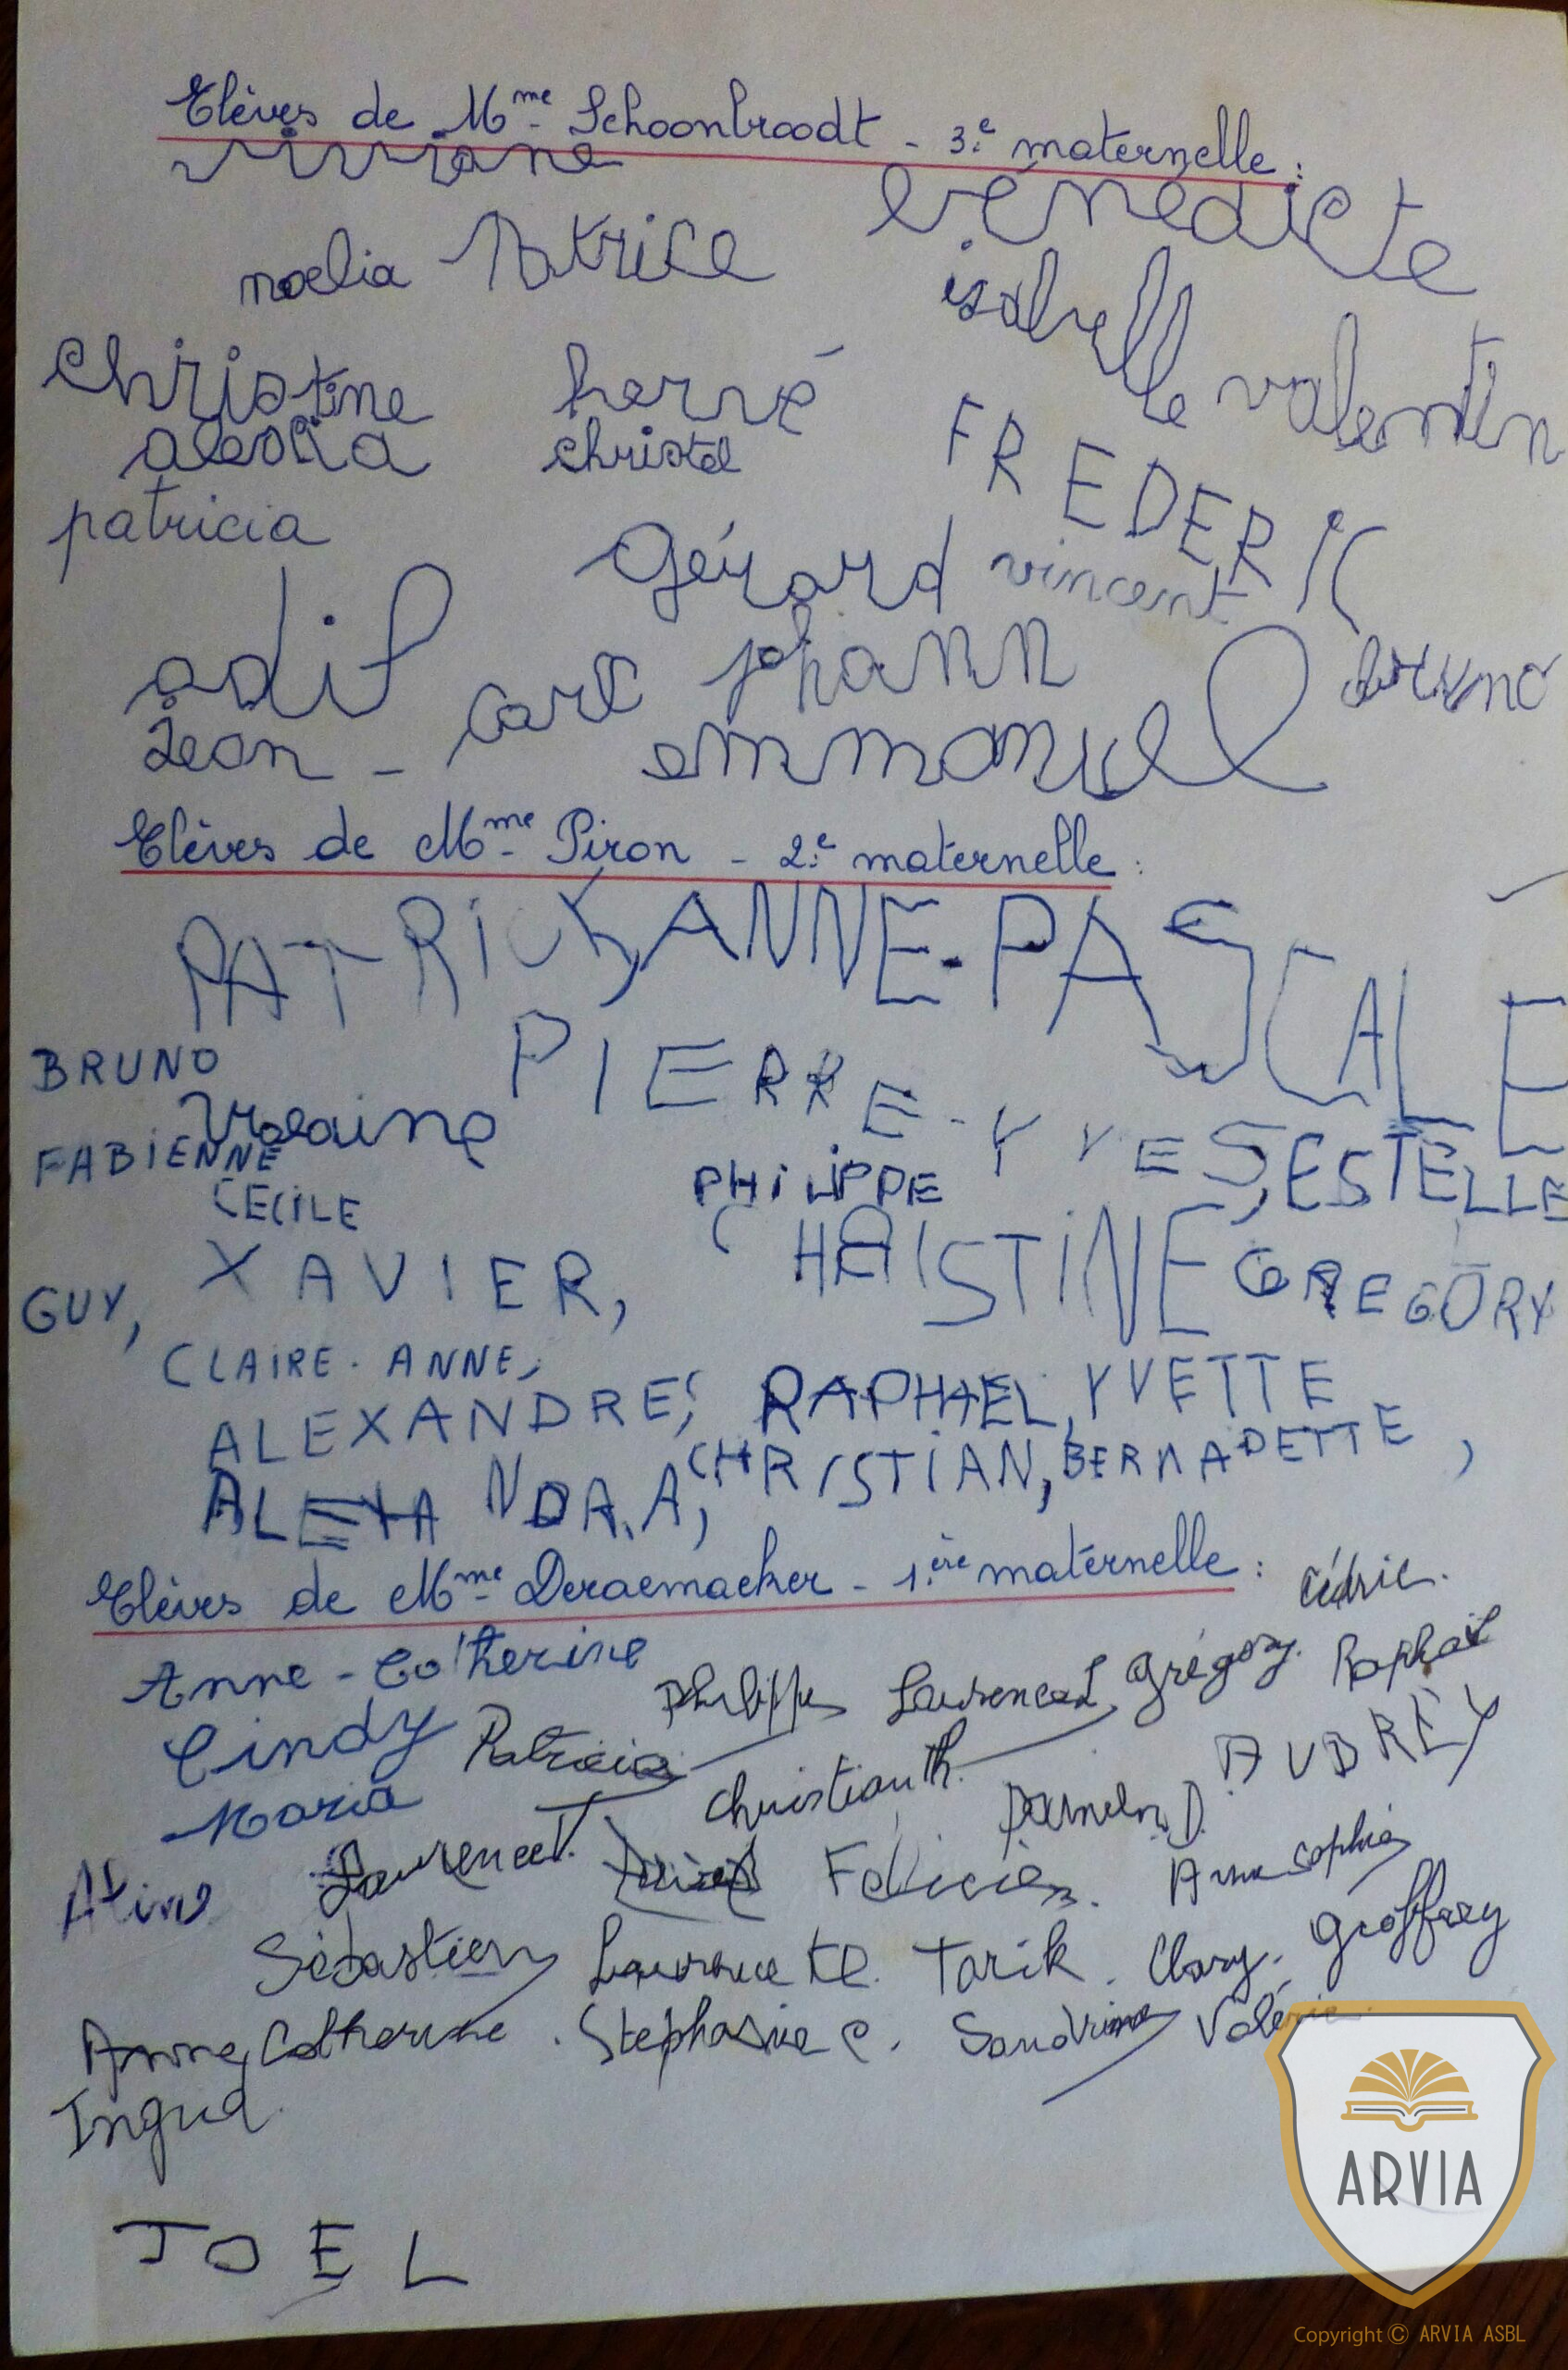 Elèves de Mme Schoonbroodt - 3e maternelle :
viviane
bénédicte
noelia Patrice
isabelle valentin
christine hervé
alessia christel
FREDERIC
patricia
gérard vincent
adil carl johann bruno
Jean - emmanuel
Elèves de Mme Piron - 2e maternelle :
PATRICK, ANNE-PASCALE
BRUNO
PIERRE-YVES, ESTELLE
FABIENNE
PHILIPPE
CECILE
CHRISTINE GREGORY
GUY, XAVIER,
CLAIRE-ANNE,
ALEXANDRE, RAPHAEL, YVETTE
ALEXANDRA, CHRISTIAN, BERNADETTE,
Elèves de Mme Deraemaeker - 1.ère maternelle :
Cédric.
Anne-Catherine
Philippe Laurence L Grégory. Raphaël
Cindy Patricia
Christian Th. AUBREY
Maria
Laurence V. Félicien. Anne Sophie
Sébastien Laurence Tarik. Clary. Geoffrey
Anne Catherine. Stephanie C. Sandrine Valérie.
Ingrid.
JOEL
ARVIA
Copyright © ARVIA ASBL